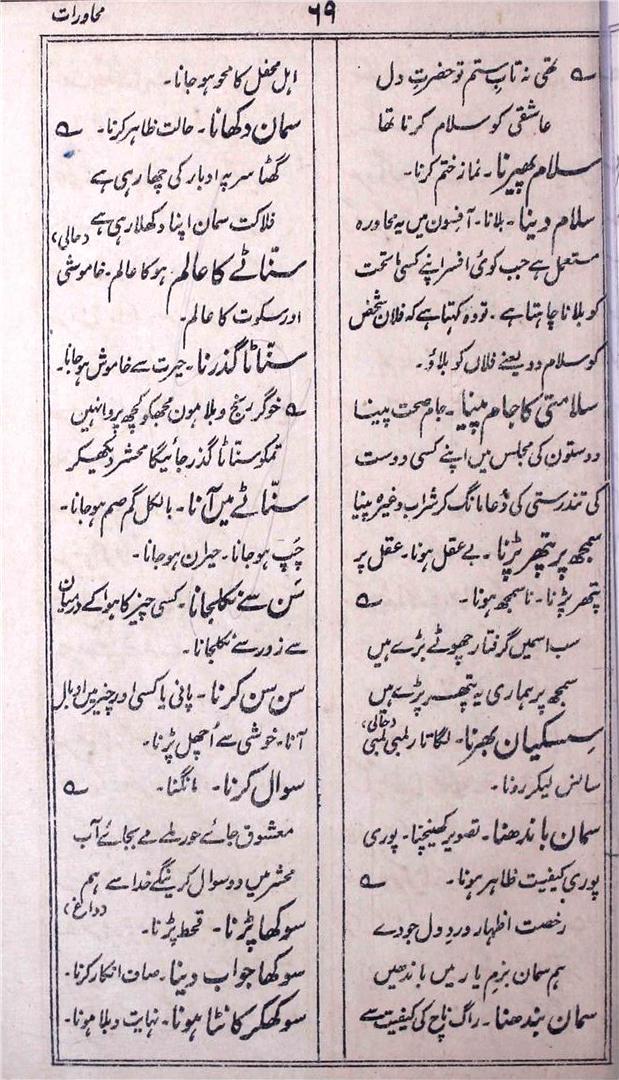 محاورات
۶۹
ے تھی نہ تابِ ستم تو حضرتِ دل
عاشقی کو سلام کرنا تھا
سلام پھیرنا۔ نماز ختم کرنا۔
سلام دینا۔ بلانا۔ آفسون میں یہ محاورہ
مستعمل ہے جب کوئی افسر اپنے کسی ماتحت
کو بلانا چاہتا ہے۔ تو وہ کہتا ہے کہ فلان شخص
کو سلام دو یعنے فلاں کو بلاؤ۔
سلامتی کا جام پینا۔ جام صحت پینا
دوستون کی مجلس میں اپنے کسی دوست
کی تندرستی کی دُعا مانگ کر شراب وغیرہ پینا
سمجھ پر پتھر پڑنا۔ بے عقل ہونا۔ عقل پر
پتھر پڑنا۔ ناسمجھ ہونا۔ ے
سب اسمیں گرفتار چھوٹے بڑے ہیں
سمجھ پر ہماری یہ پتھر پڑے ہیں
(حالی)
سسکیان بھرنا۔ لگاتار لمبی لمبی
سانس لیکر رونا۔
سمان باندھنا۔ تصویر کھینچنا۔ پوری
پوری کیفیت ظاہر ہونا۔ ے
رخصت اظہار وردِ دل جو دے
ہم سمان بزمِ یار میں باندھیں
سمان بندھنا۔ راگ ناچ کی کیفیت سے
اہل محفل کا محو ہو جانا۔
سمان دکھانا۔ حالت ظاہر کرنا۔ ے
گھٹا سر پہ ادبار کی چھا رہی ہے
فلاکت سمان اپنا دکھلا رہی ہے
(حالی)
سنّاٹے کا عالم ہو کا عالم۔ خاموشی
اور سکوت کا عالم۔
سنّاٹا گذرنا۔ حیرت سے خاموش ہو جانا۔
ے خوگر رنج و بلا ہون مجھکو کچھ پروا نہین
تمکو سنّاٹا گذر جائیگا محشر دیکھیکر
سنّاٹے میں آنا۔ بالکل گم صم ہو جانا۔
چُپ ہو جانا۔ حیران ہو جانا۔
سَن سے نکلجانا۔ کسی چیز کا ہوا کے درمیان
سے زور سے نکلجانا۔
سن سن کرنا۔ پانی یا کسی اور چیز میں اوبال
آنا۔ خوشی سے اُچھل پڑنا۔
سوال کرنا۔ مانگنا۔ ے
معشوق جائے حور ملے مے بجائے آب
محشر میں دو سوال کرینگے خدا سے ہم
(داغ)
سوکھا پڑنا۔ قحط پڑنا۔
سوکھا جواب دینا۔ صاف انکار کرنا۔
سوکھکر کانٹا ہونا۔ نہایت دبلا ہونا۔